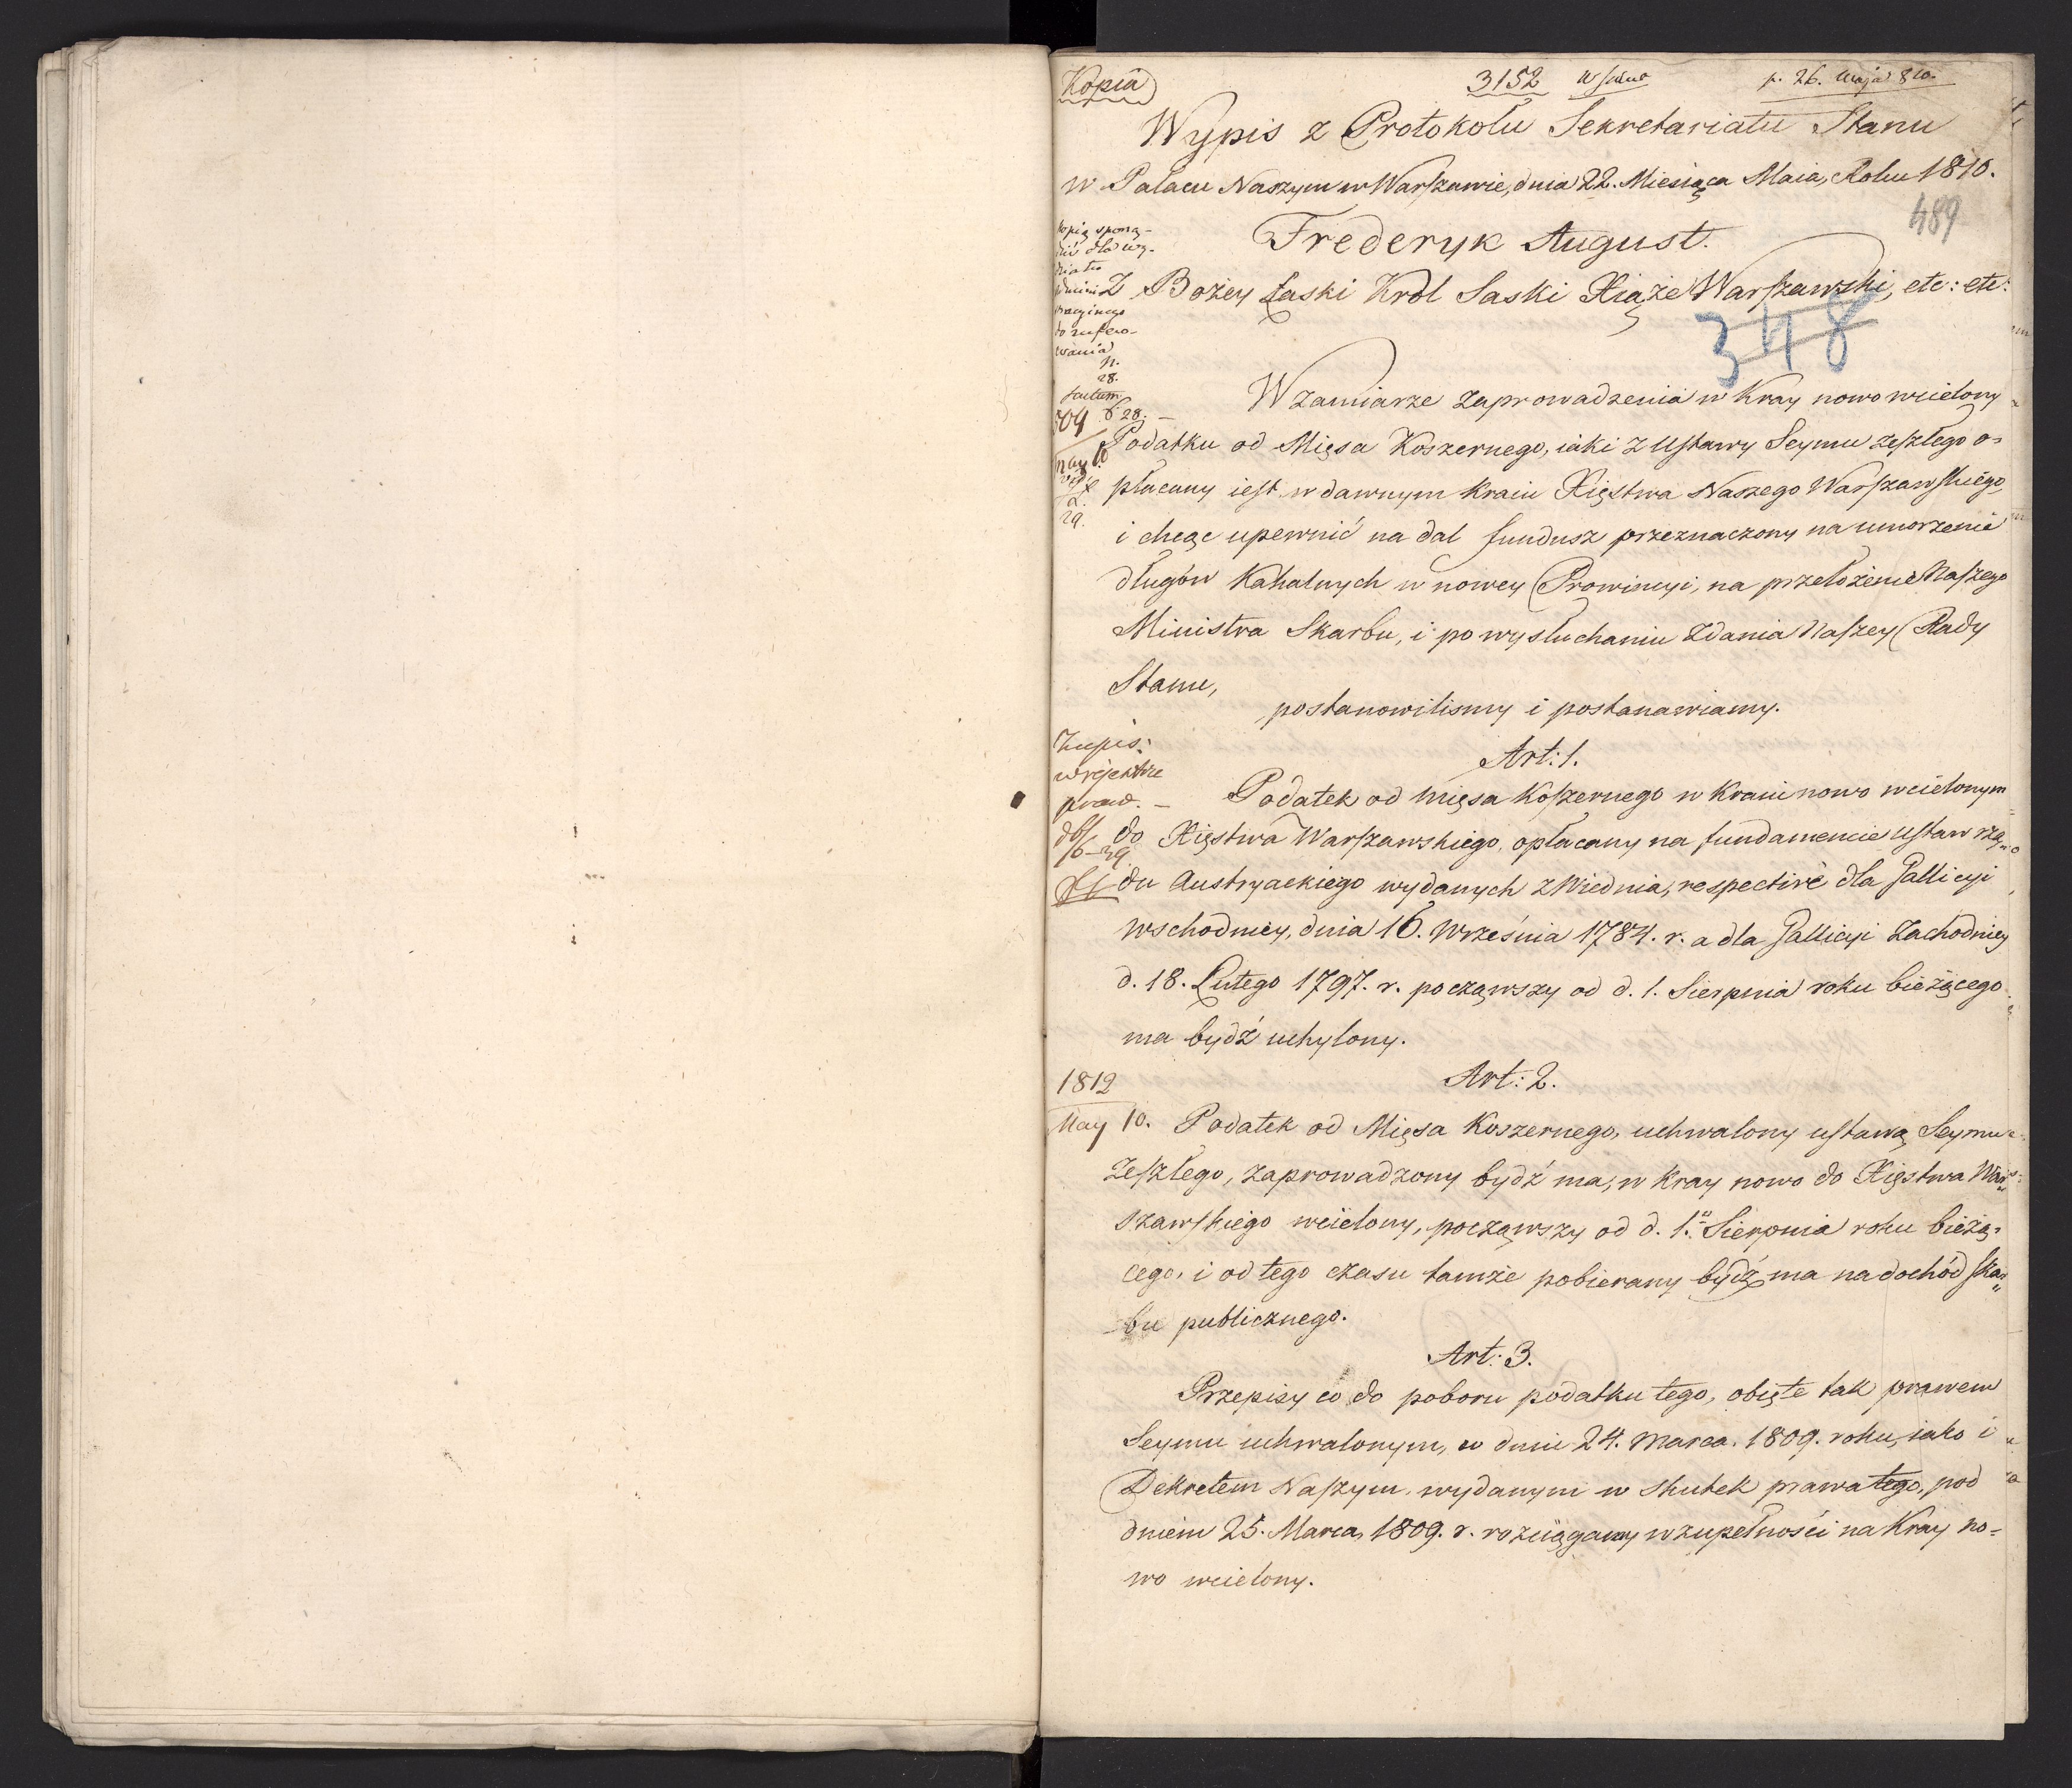 Kopia
3152
p. 26. Maja 810.
Wypis z Protokołu Sekretariatu Stanu
w Pałacu Naszym w Warszawie, dnia 22. Miesiąca Maia, Roku 1810.
489
Frederyk August.
Z Bożey Łaski Krol Saski Xiąże Warszawski, etc: etc:
348
W zamiarze zaprowadzenia w Kray nowo wcielony
Podatku od Mięsa Koszernego, iaki z Ustawy Seymu zeszłego o=
płacany iest w dawnym Kraiu Xięstwa Naszego Warszawskiego,
i chcąc upewnić na dal fundusz przeznaczony na umorzenie
długów Kahalnych w nowey Prowincyi, na przełożenie Naszego
Ministra Skarbu, i po wysłuchaniu Zdania Naszey Rady
Stanu,
postanowilismy i postanawiamy.
Art: 1.
Podatek od mięsa Koszernego w Kraiu nowo wcielonym
do Xięstwa Warszawskiego, opłacany na fundamencie Ustaw rzą„
du Austryackiego wydanych z Wiednia, respective dla Gallicyi
wschodniey, dnia 16. Września 1784. r. a dla Gallicyi Zachodniey
d. 18. Lutego 1797. r. począwszy od d. 1. Sierpnia roku bieżącego
ma bydź uchylony.
Art: 2.
1812
May 10.
Podatek od Mięsa Koszernego, uchwalony ustawą Seymu
zeszłego, zaprowadzony bydź ma, w Kray nowo do Xięstwa War„
szawskiego wcielony, począwszy od d. 1. Sierpnia roku bieżą=
cego, i od tego czasu tamże pobierany bydź ma na dochód skar„
bu publicznego.
Art: 3.
Przepisy co do poboru podatku tego, obięte tak prawem
Seymu uchwalonym, w dniu 24. Marca. 1809. roku, iako i
Dekretem Naszym, wydanym w skutek prawa tego, pod
dniem 25. Marca, 1809. r. rozciągamy w zupełności na Kray no=
wo wcielony.